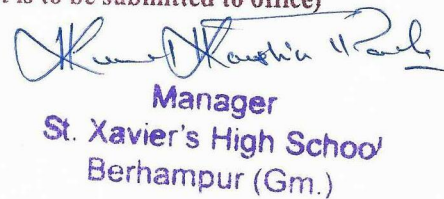 is to be submitted to office)
Manager
St. Xavier's High School
Berhampur (Gm.)